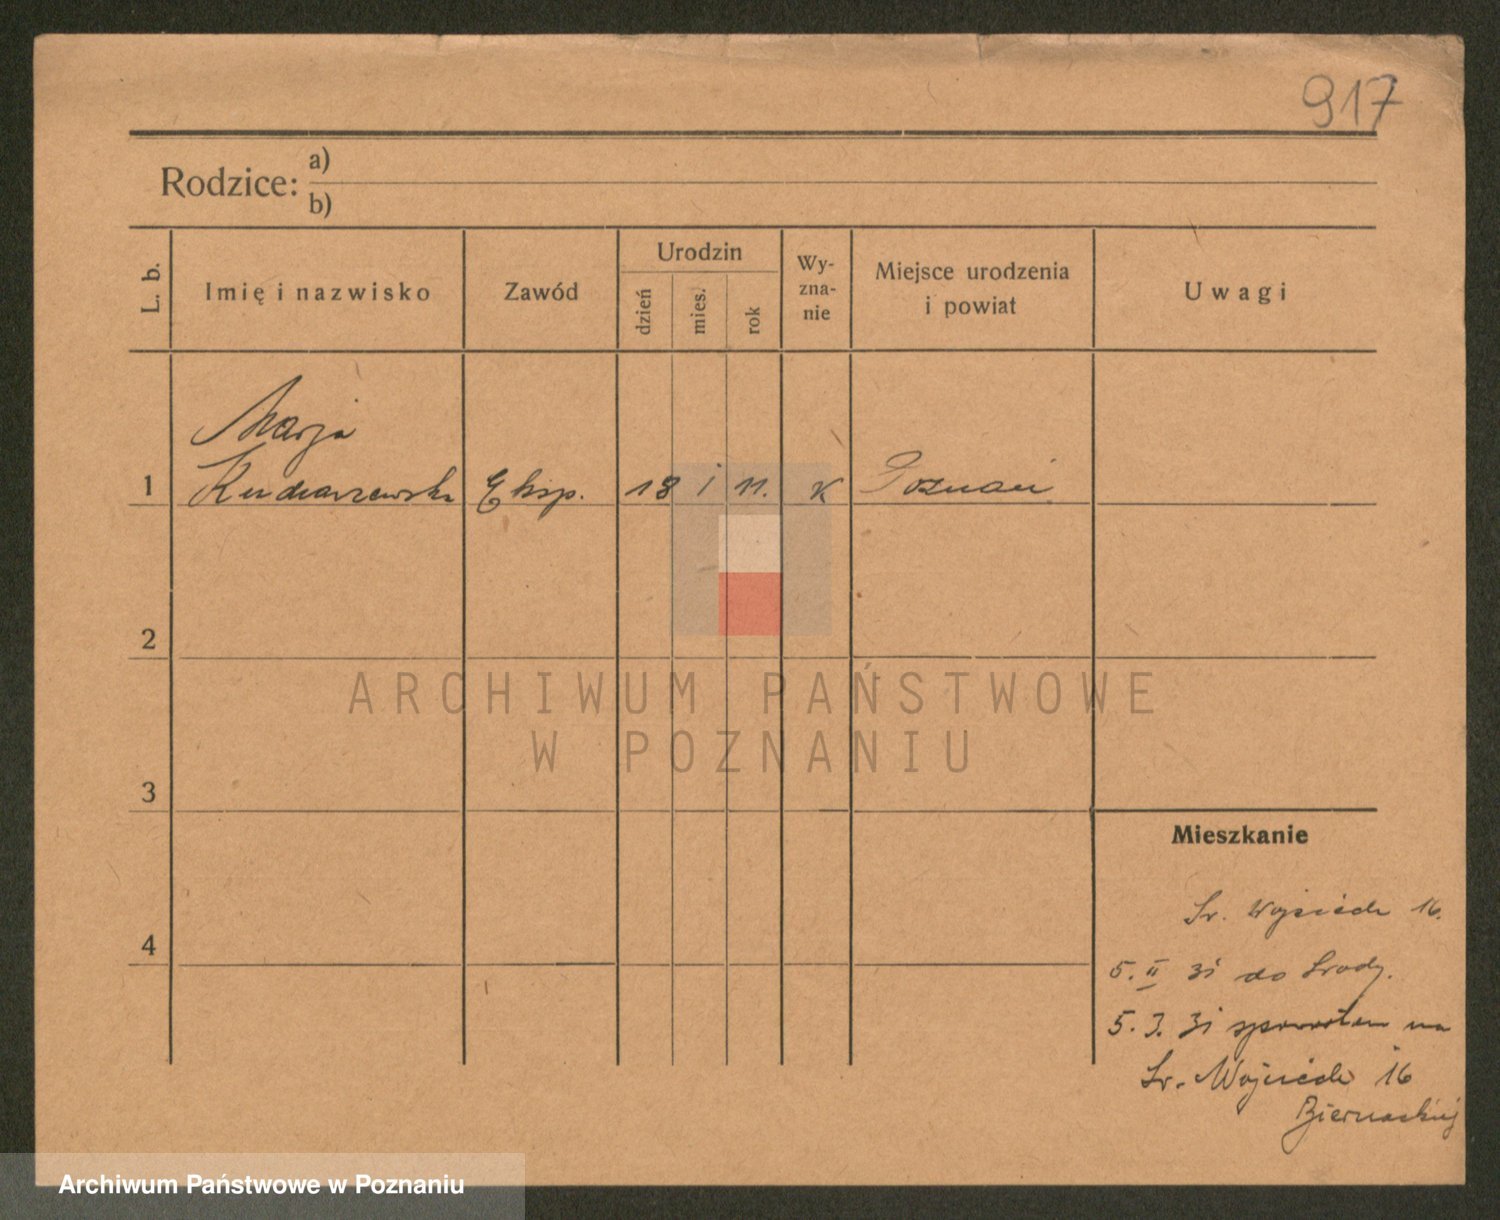 917
Rodzice: a)
b)
L. b.
Imię i nazwisko
Zawód
Urodzin
dzień
mies.
rok
Wy-
zna-
nie
Miejsce urodzenia
i powiat
Uwagi
Marja
1 Eksp. 18 I 11. K Poznań
2
3
4
Mieszkanie
Św. Wojciech 16.
5. II 31 do Środy.
5. 3. 31 zpowrotem na
Św. Wojciech 16
ARCHIWUM PAŃSTWOWE
W POZNANIU
Archiwum Państwowe w Poznaniu